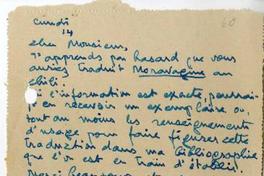 Lundi
14
60
cher Monsieur,
J'apprends par hasard que vous
auriez traduit Moravagine au
Chili.
Si l'information est exacte, pourrais-
je en recevoir un exemplaire ou
tout au moins les renseignements
d'usage pour faire figurer cette
traduction dans ma bibliographie
que l'on est en train d'établir.
Merci beaucoup